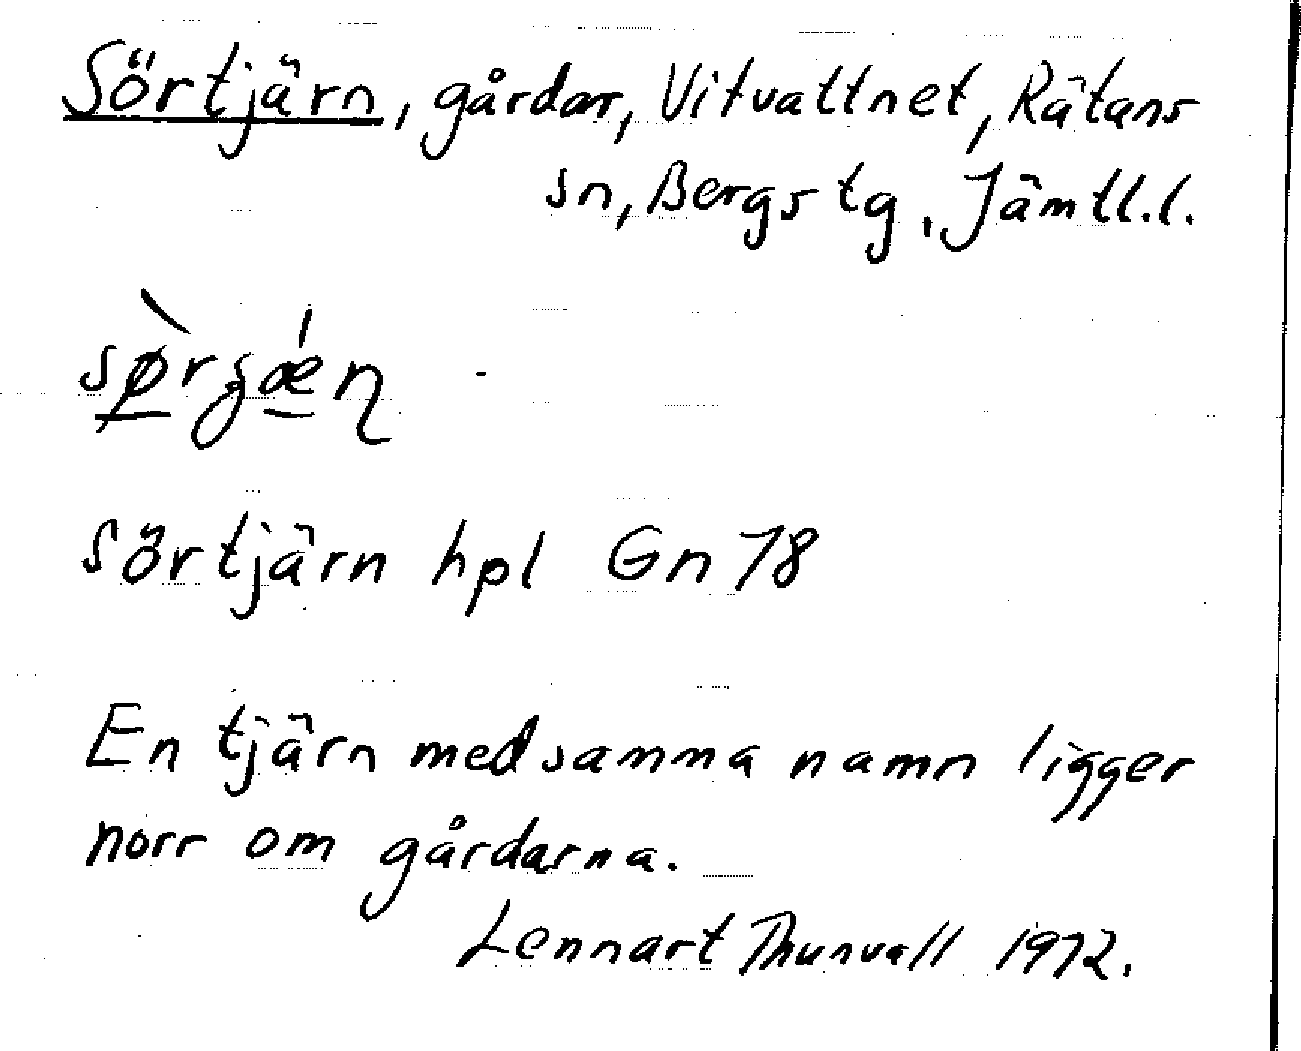 Sörtjärn, gårdar, Vitvattnet, Rätans
sn, Bergs tg, Jämtl.l.
Sörtjärn hpl Gn 78
En tjärn med samma namn ligger
norr om gårdarna.
Lennart Thunvall 1972.